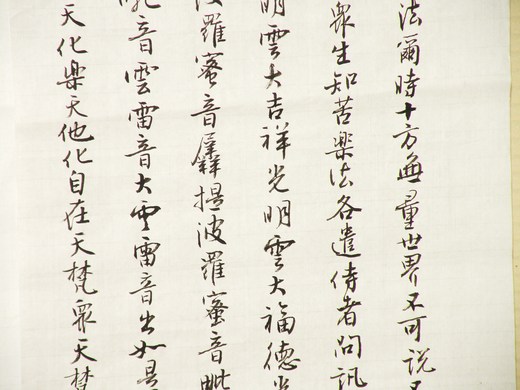 法爾時十方無量世界不可說
眾生知苦樂法各遣侍者問訊
明雲大吉祥光明雲大福德光
波羅蜜音羼提波羅蜜音毗
吼音雲雷音大雲雷音出如是
天化樂天他化自在天梵眾天梵